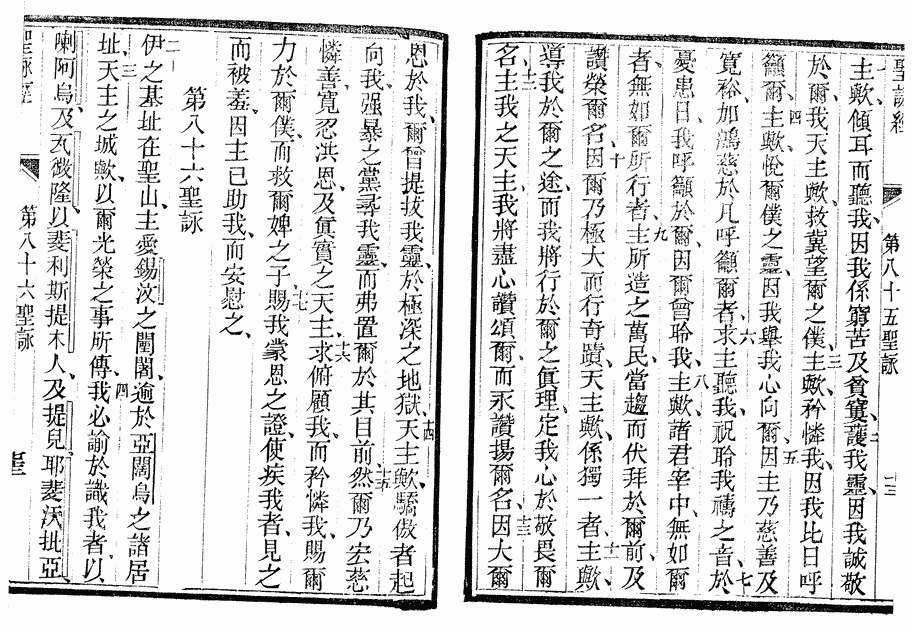 聖詠經 第八十五聖詠
主歟、傾耳而聽我、因我係窮苦及貧窶、二護我靈、因我誠敬
於爾、我天主歟、救冀望爾之僕、三主歟、矜憐我、因我比日呼
籲爾、四主歟、悅爾僕之靈、因我舉我心向爾、五因主乃慈善及
寬裕、加鴻慈於凡呼籲爾者、六求主聽我祝、聆我禱之音、七於
憂患日、我呼籲於爾、因爾曾聆我、八主歟、諸君宰中、無如爾
者、無如爾所行者、九主所造之萬民、當趨而伏拜於爾前、及
讚榮爾名、十因爾乃極大而行奇蹟、天主歟、係獨一者、十一主歟、
導我於爾之途、而我將行於爾之眞理、定我心於敬畏爾
名、十二主我之天主、我將盡心讚頌爾、而永讚揚爾名、十三因大爾
恩於我、爾曾提拔我靈、於極深之地獄、十四天主歟、驕傲者起
向我、强暴之黨尋我靈、而弗置爾於其目前、十五然爾乃宏慈
憐善、寬忍洪恩、及眞實之天主、十六求俯顧我、而矜憐我、賜爾
力於爾僕、而救爾婢之子、十七賜我蒙恩之證、使疾我者、見之
而被羞、因主已助我、而安慰之、
第八十六聖詠
伊之基址在聖山、二主愛錫汶之闉闍、逾於亞闊烏之諸居
址、三天主之城歟、以爾光榮之事所傳、四我必諭於識我者、以
喇阿烏、及瓦微隆、以斐利斯提木人、及提兒、耶斐沃批亞、
聖詠經 第八十六聖詠